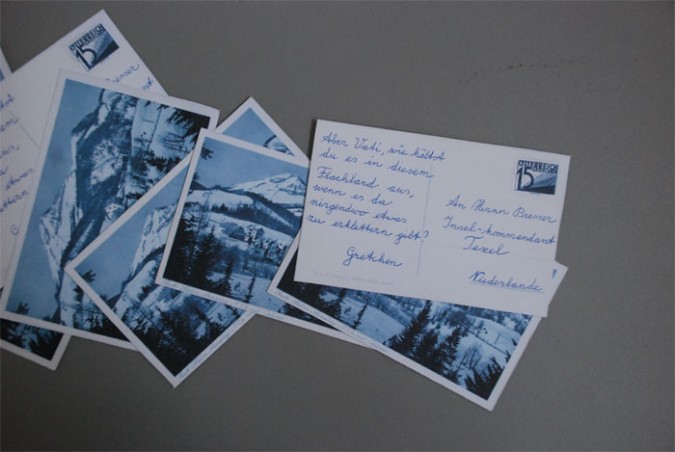 ÖSTERREICH
15
Aber Vati, wie hältst
du es in diesem
Flachland aus,
wenn es du
nirgendwo etwas
zu erklettern gibt?
Gretchen
ÖSTERREICH
15
An Herrn Bresser
Insel-Kommandant
Texel
Niederlande